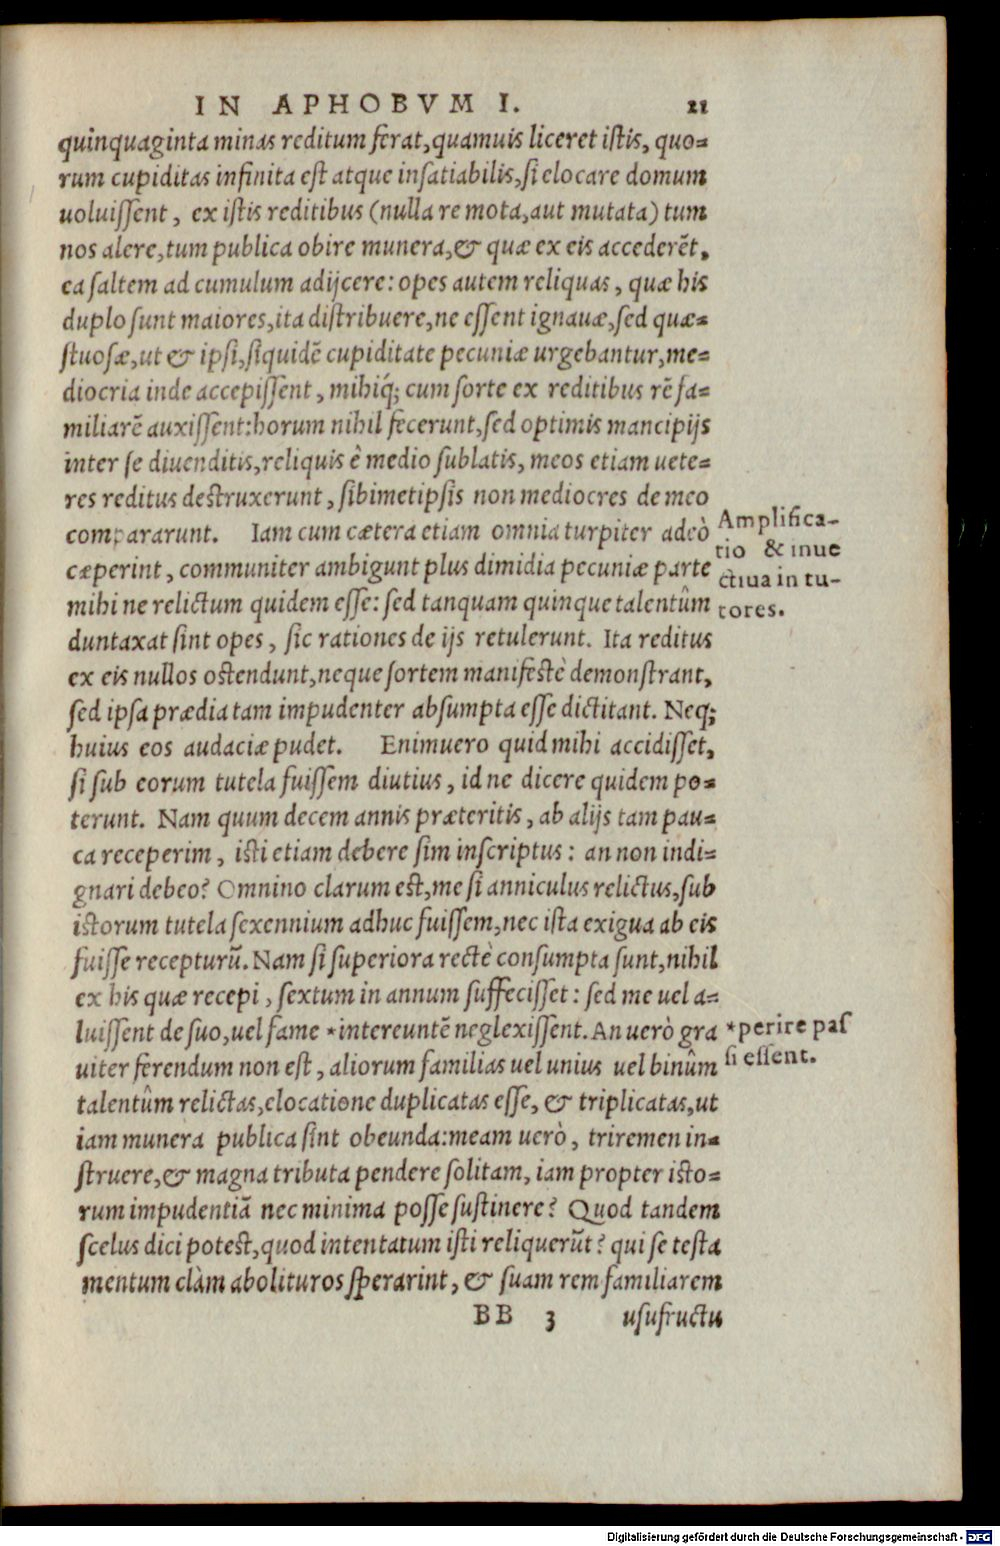 IN APHOBVM I. 21
quinquaginta minas reditum ferat, quamuis liceret istis, quo-
rum cupiditas infinita est atque insatiabilis, si elocare domum
uoluissent, ex istis reditibus (nulla re mota, aut mutata) tum
nos alere, tum publica obire munera, & quæ ex eis accederēt,
ea saltem ad cumulum adijcere: opes autem reliquas, quæ his
duplo sunt maiores, ita distribuere, ne essent ignauæ, sed quæ-
stuosæ, ut & ipsi, siquidē cupiditate pecuniæ urgebantur, me-
diocria inde accepissent, mihiq́; cum sorte ex reditibus rē fa-
miliarē auxissent: horum nihil fecerunt, sed optimis mancipijs
inter se diuenditis, reliquis è medio sublatis, meos etiam uete-
res reditus destruxerunt, sibimetipsis non mediocres de meo
compararunt. Iam cum cætera etiam omnia turpiter adeò
cæperint, communiter ambigunt plus dimidia pecuniæ parte
mihi ne relictum quidem esse: sed tanquam quinque talentûm
duntaxat sint opes, sic rationes de ijs retulerunt. Ita reditus
ex eis nullos ostendunt, neque sortem manifestè demonstrant,
sed ipsa prædia tam impudenter absumpta esse dictitant. Neq;
huius eos audaciæ pudet. Enimuero quid mihi accidisset,
si sub eorum tutela fuissem diutius, id ne dicere quidem po-
terunt. Nam quum decem annis præteritis, ab alijs tam pau-
ca receperim, isti etiam debere sim inscriptus: an non indi-
gnari debeo? Omnino clarum est, me si anniculus relictus, sub
istorum tutela sexennium adhuc fuissem, nec ista exigua ab eis
fuisse recepturū. Nam si superiora rectè consumpta sunt, nihil
ex his quæ recepi, sextum in annum suffecisset: sed me uel a-
luissent de suo, uel fame *intereuntē neglexissent. An uerò gra
uiter ferendum non est, aliorum familias uel unius uel binûm
talentûm relictas, elocatione duplicatas esse, & triplicatas, ut
iam munera publica sint obeunda: meam uerò, triremen in-
struere, & magna tributa pendere solitam, iam propter isto-
rum impudentiā nec minima posse sustinere? Quod tandem
scelus dici potest, quod intentatum isti reliquerūt? qui se testa
mentum clàm abolituros sperarint, & suam rem familiarem
BB 3 usufructu
Amplifica-
tio & inue
ctiua in tu-
tores.
*perire pas
si essent.
Digitalisierung gefördert durch die Deutsche Forschungsgemeinschaft - DFG